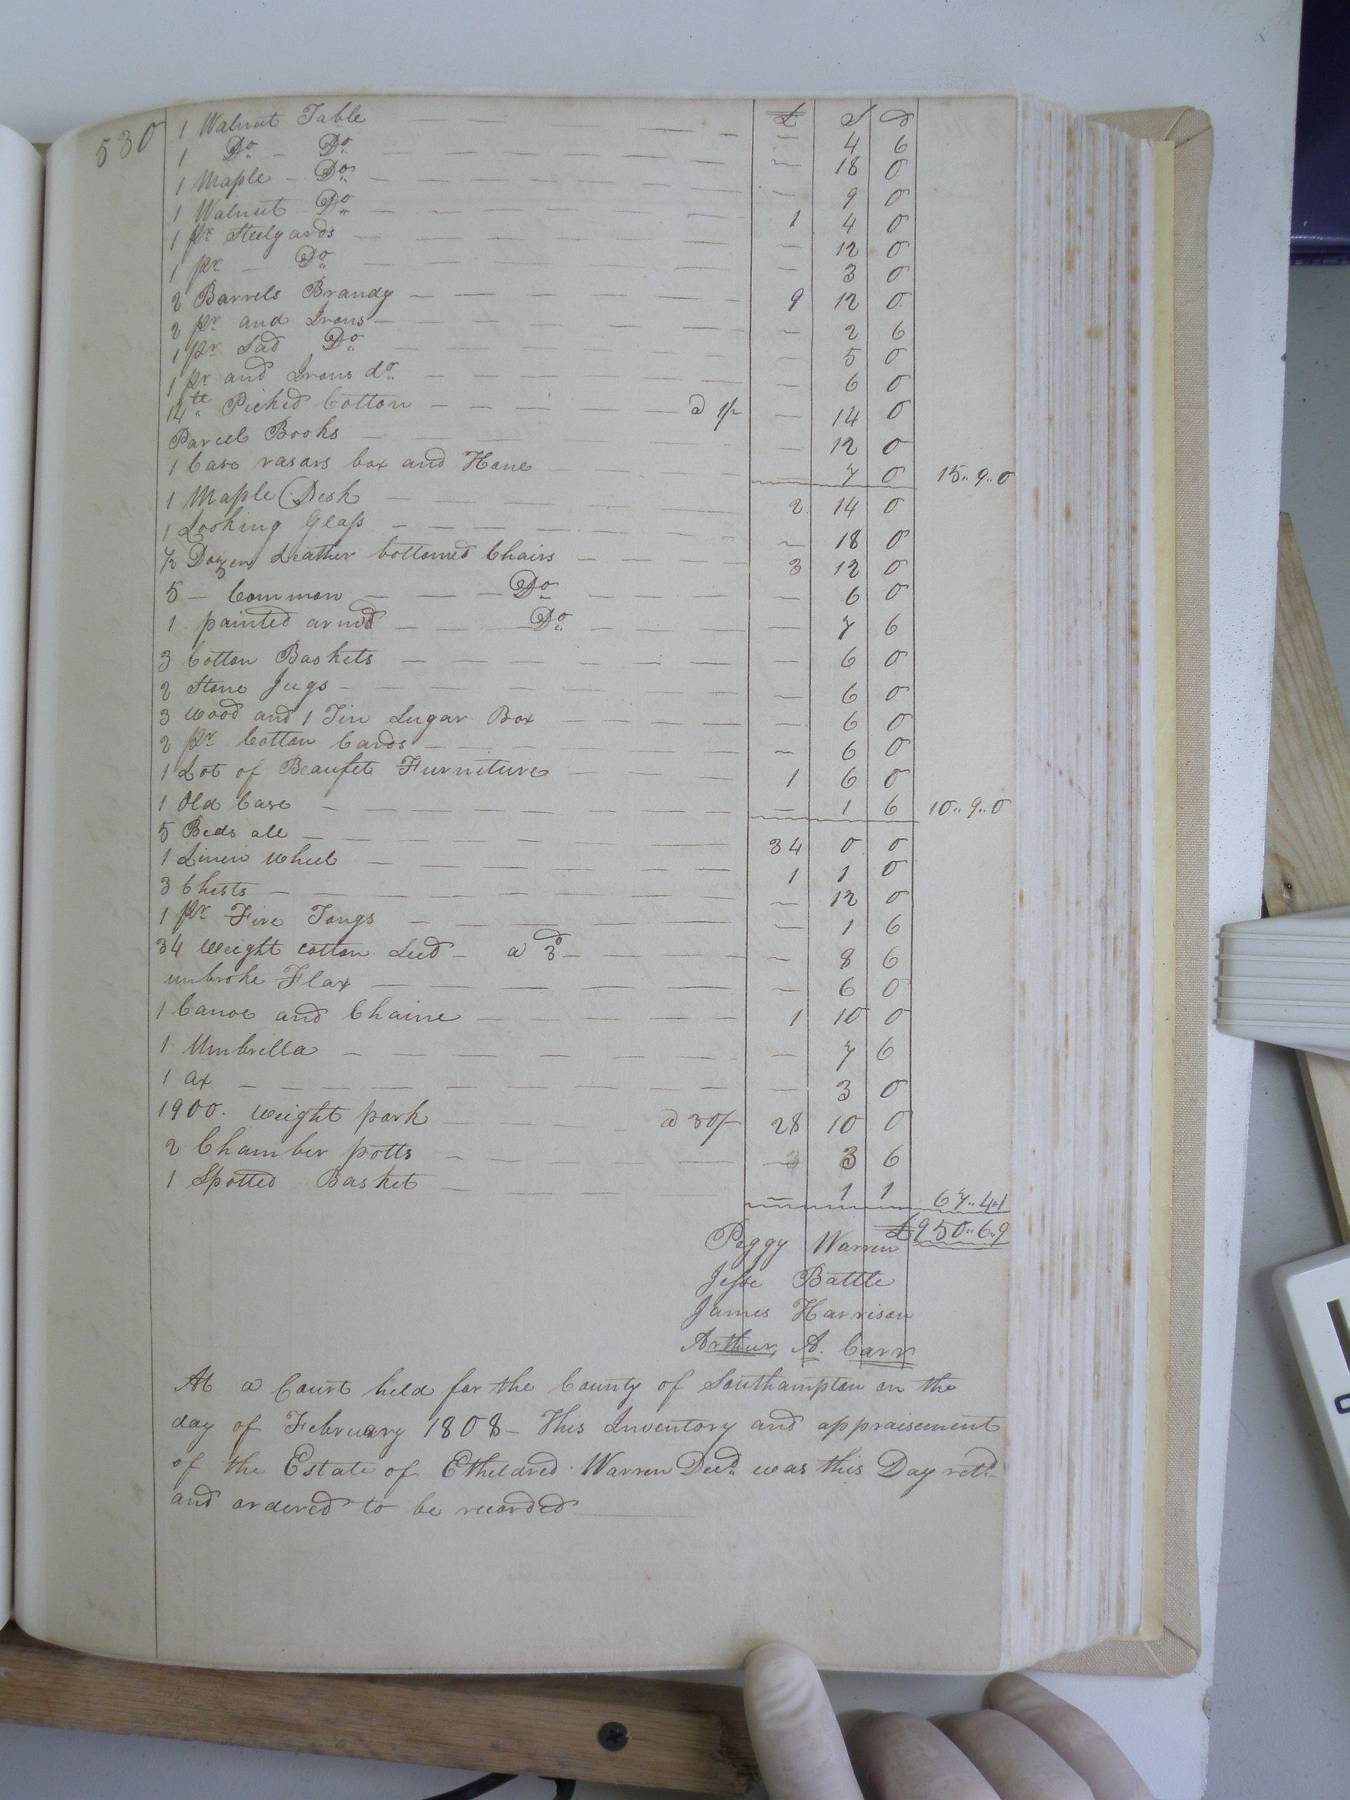 530
£ S D
1 Walnut Table — — — — — 4 6
1 Do. — Do. — — — — — 18 0
1 Maple — Do. — — — — — 9 0
1 Walnut — Do. — — — — 1 4 0
1 pr Steelyards — — — — — 12 0
1 pr — Do. — — — — — 3 0
2 Barrels Brandy — — — — 9 12 0
2 pr and Irons — — — — — 2 6
1 pr Sad Do. — — — — — 5 0
1 pr and Irons do. — — — — 6 0
14 tt Picked Cotton — — — — a 1/ — 14 0
Parcel Books — — — — 12 0
1 Case rasors box and Hone — — — 7 0 15..9..0
1 Maple Desk — — — — 2 14 0
1 Looking Glass — — — — — 18 0
½ Dozen Leather bottomed Chairs — — — 3 12 0
5 — Common — — — Do — — — — 6 0
1 painted armd — — Do. — — — — 7 6
3 Cotton Baskets — — — — — 6 0
2 Stone Jugs — — — — — 6 0
3 wood and 1 Tin Sugar Box — — — — 6 0
2 pr Cotton Cards — — — — — 6 0
1 Lot of Beaufet Furniture — — — 1 6 0
1 Old Case — — — — — 1 6 10..9..0
5 Beds all — — — — 34 0 0
1 Linen wheel — — — — 1 1 0
3 Chests — — — — — 12 0
1 pr Fire Tongs — — — — — 1 6
34 weight cotton Seed — a 3d — — — — 8 6
unbroke Flax — — — — — 6 0
1 Canoe and Chaine — — — — 1 10 0
1 Umbrella — — — — — 7 6
1 ax — — — — — 3 0
1900. weight pork — — — a 30/ 28 10 0
2 Chamber potts — — — — — 3 6
1 Spotted Basket — — — — — 1 1 67..4..1
£950..6..9
Peggy Warren
Jesse Battle
James Harrison
Arthur A. Carr
At a Court held for the County of Southampton on the
day of February 1808 — This Inventory and appraisement
of the Estate of Etheldred Warren Decd. was this Day retd.
and ordered to be recorded